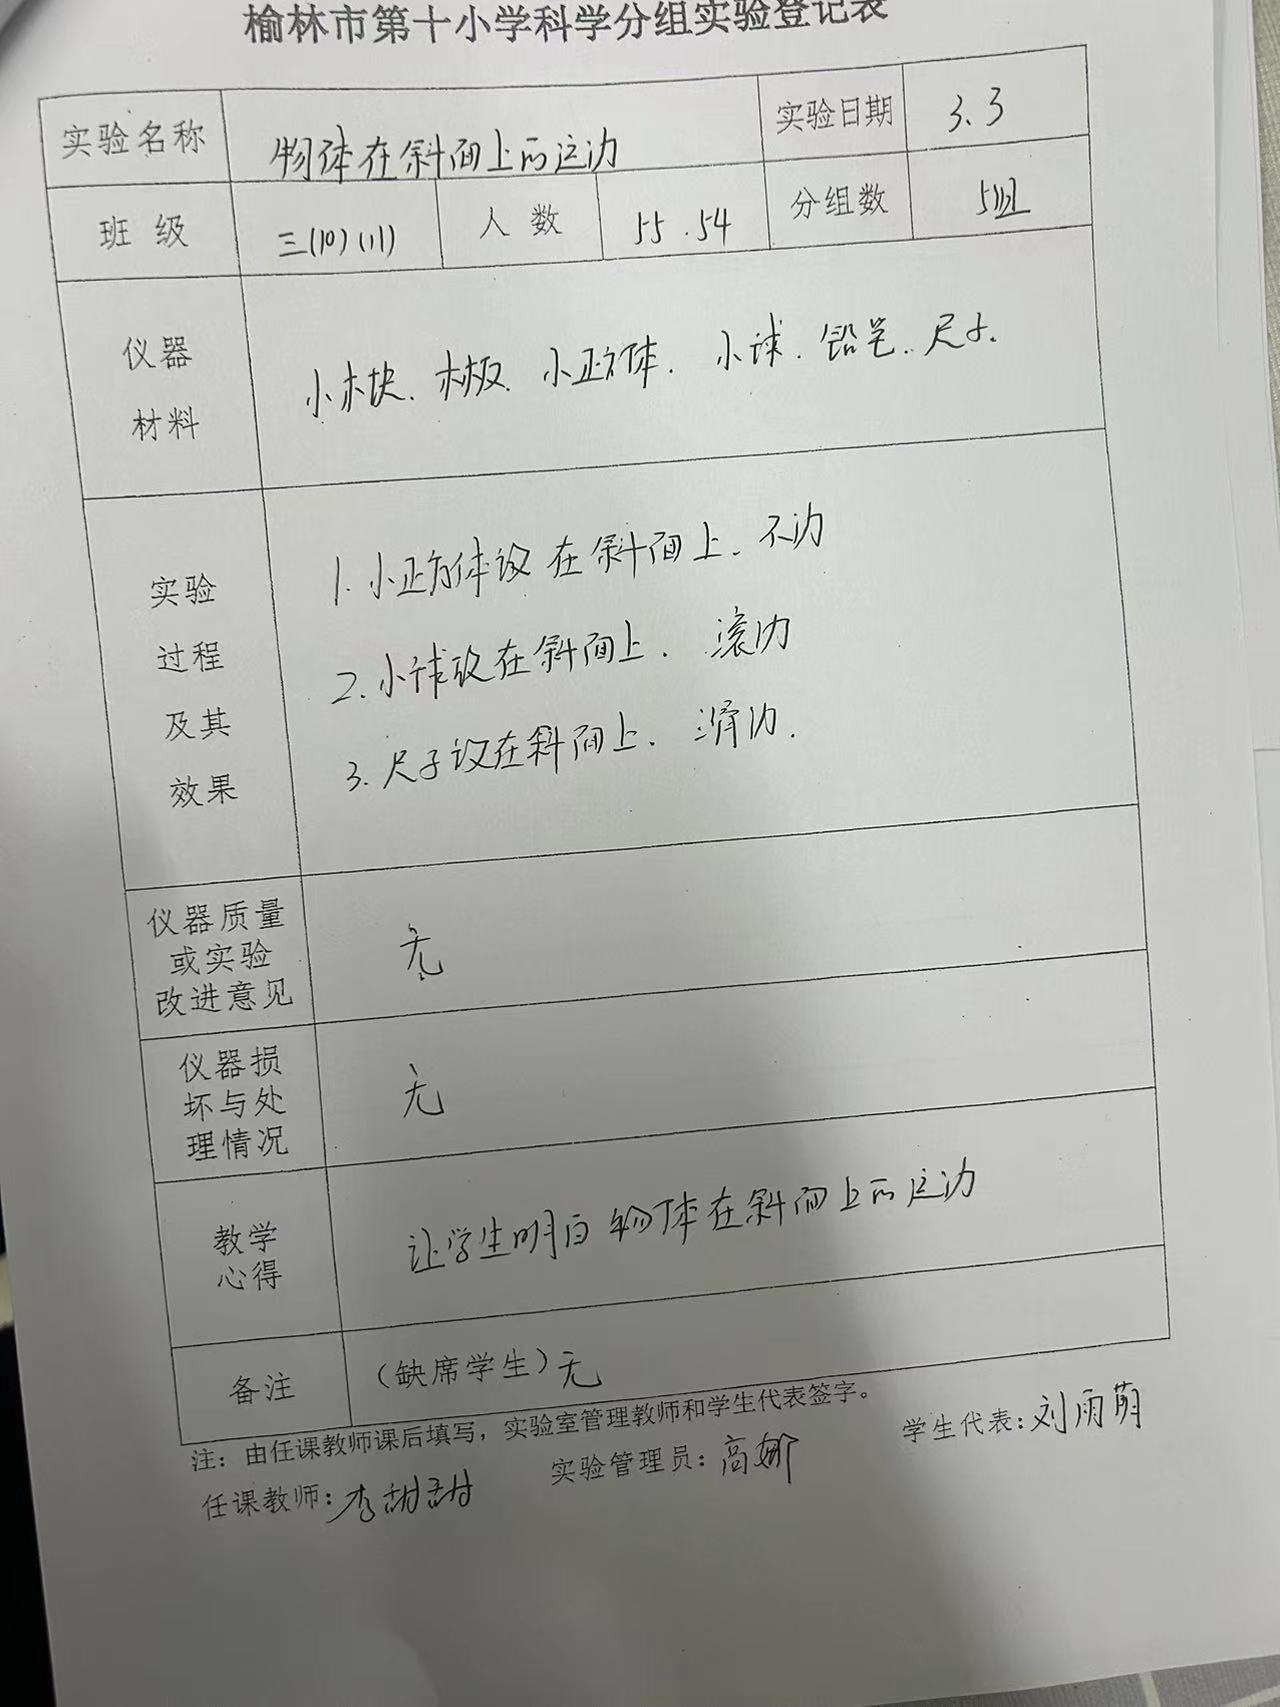 榆林市第十小学科学分组实验登记表
实验名称 物体在斜面上的运动 实验日期 3.3
班级 三(10)(11) 人数 55.54 分组数 5组
仪器
材料
小木块、木板、小正方体、小球、铅笔、尺子、
实验
过程
及其
效果
1.小正方体放在斜面上、不动
2.小球放在斜面上、滚动
3.尺子放在斜面上、滑动.
仪器质量
或实验
改进意见
无
仪器损
坏与处
理情况
无
教学
心得
让学生明白物体在斜面上的运动
备注 (缺席学生)无
注：由任课教师课后填写，实验室管理教师和学生代表签字。
任课教师：李甜甜 实验管理员：高娜 学生代表：刘雨萌